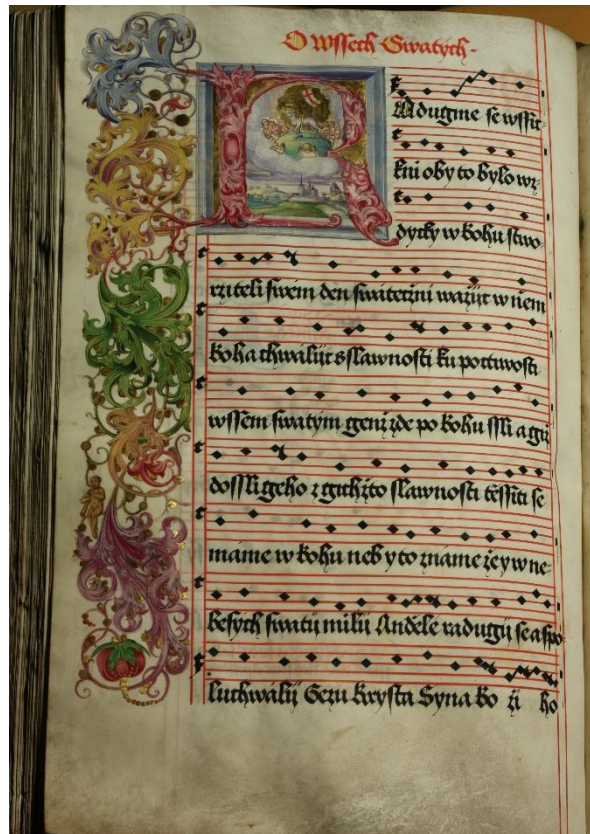 O wssech Swatych.
RAdugme se wssic-
kni oby to bylo wz-
dycky w bohu stwo
rziteli swem den swateczni wazijc w nem
boha chwalijc s slawnosti ku poctiwosti
wssem swatym genz zde po bohu ssli a giz
dossli geho z gichzto slawnosti tessiti se
mame w bohu neb y to zname zey w ne-
besych swatij milij Andele radugij se a spo
luchwalij Gezu krysta Syna bo zi ho